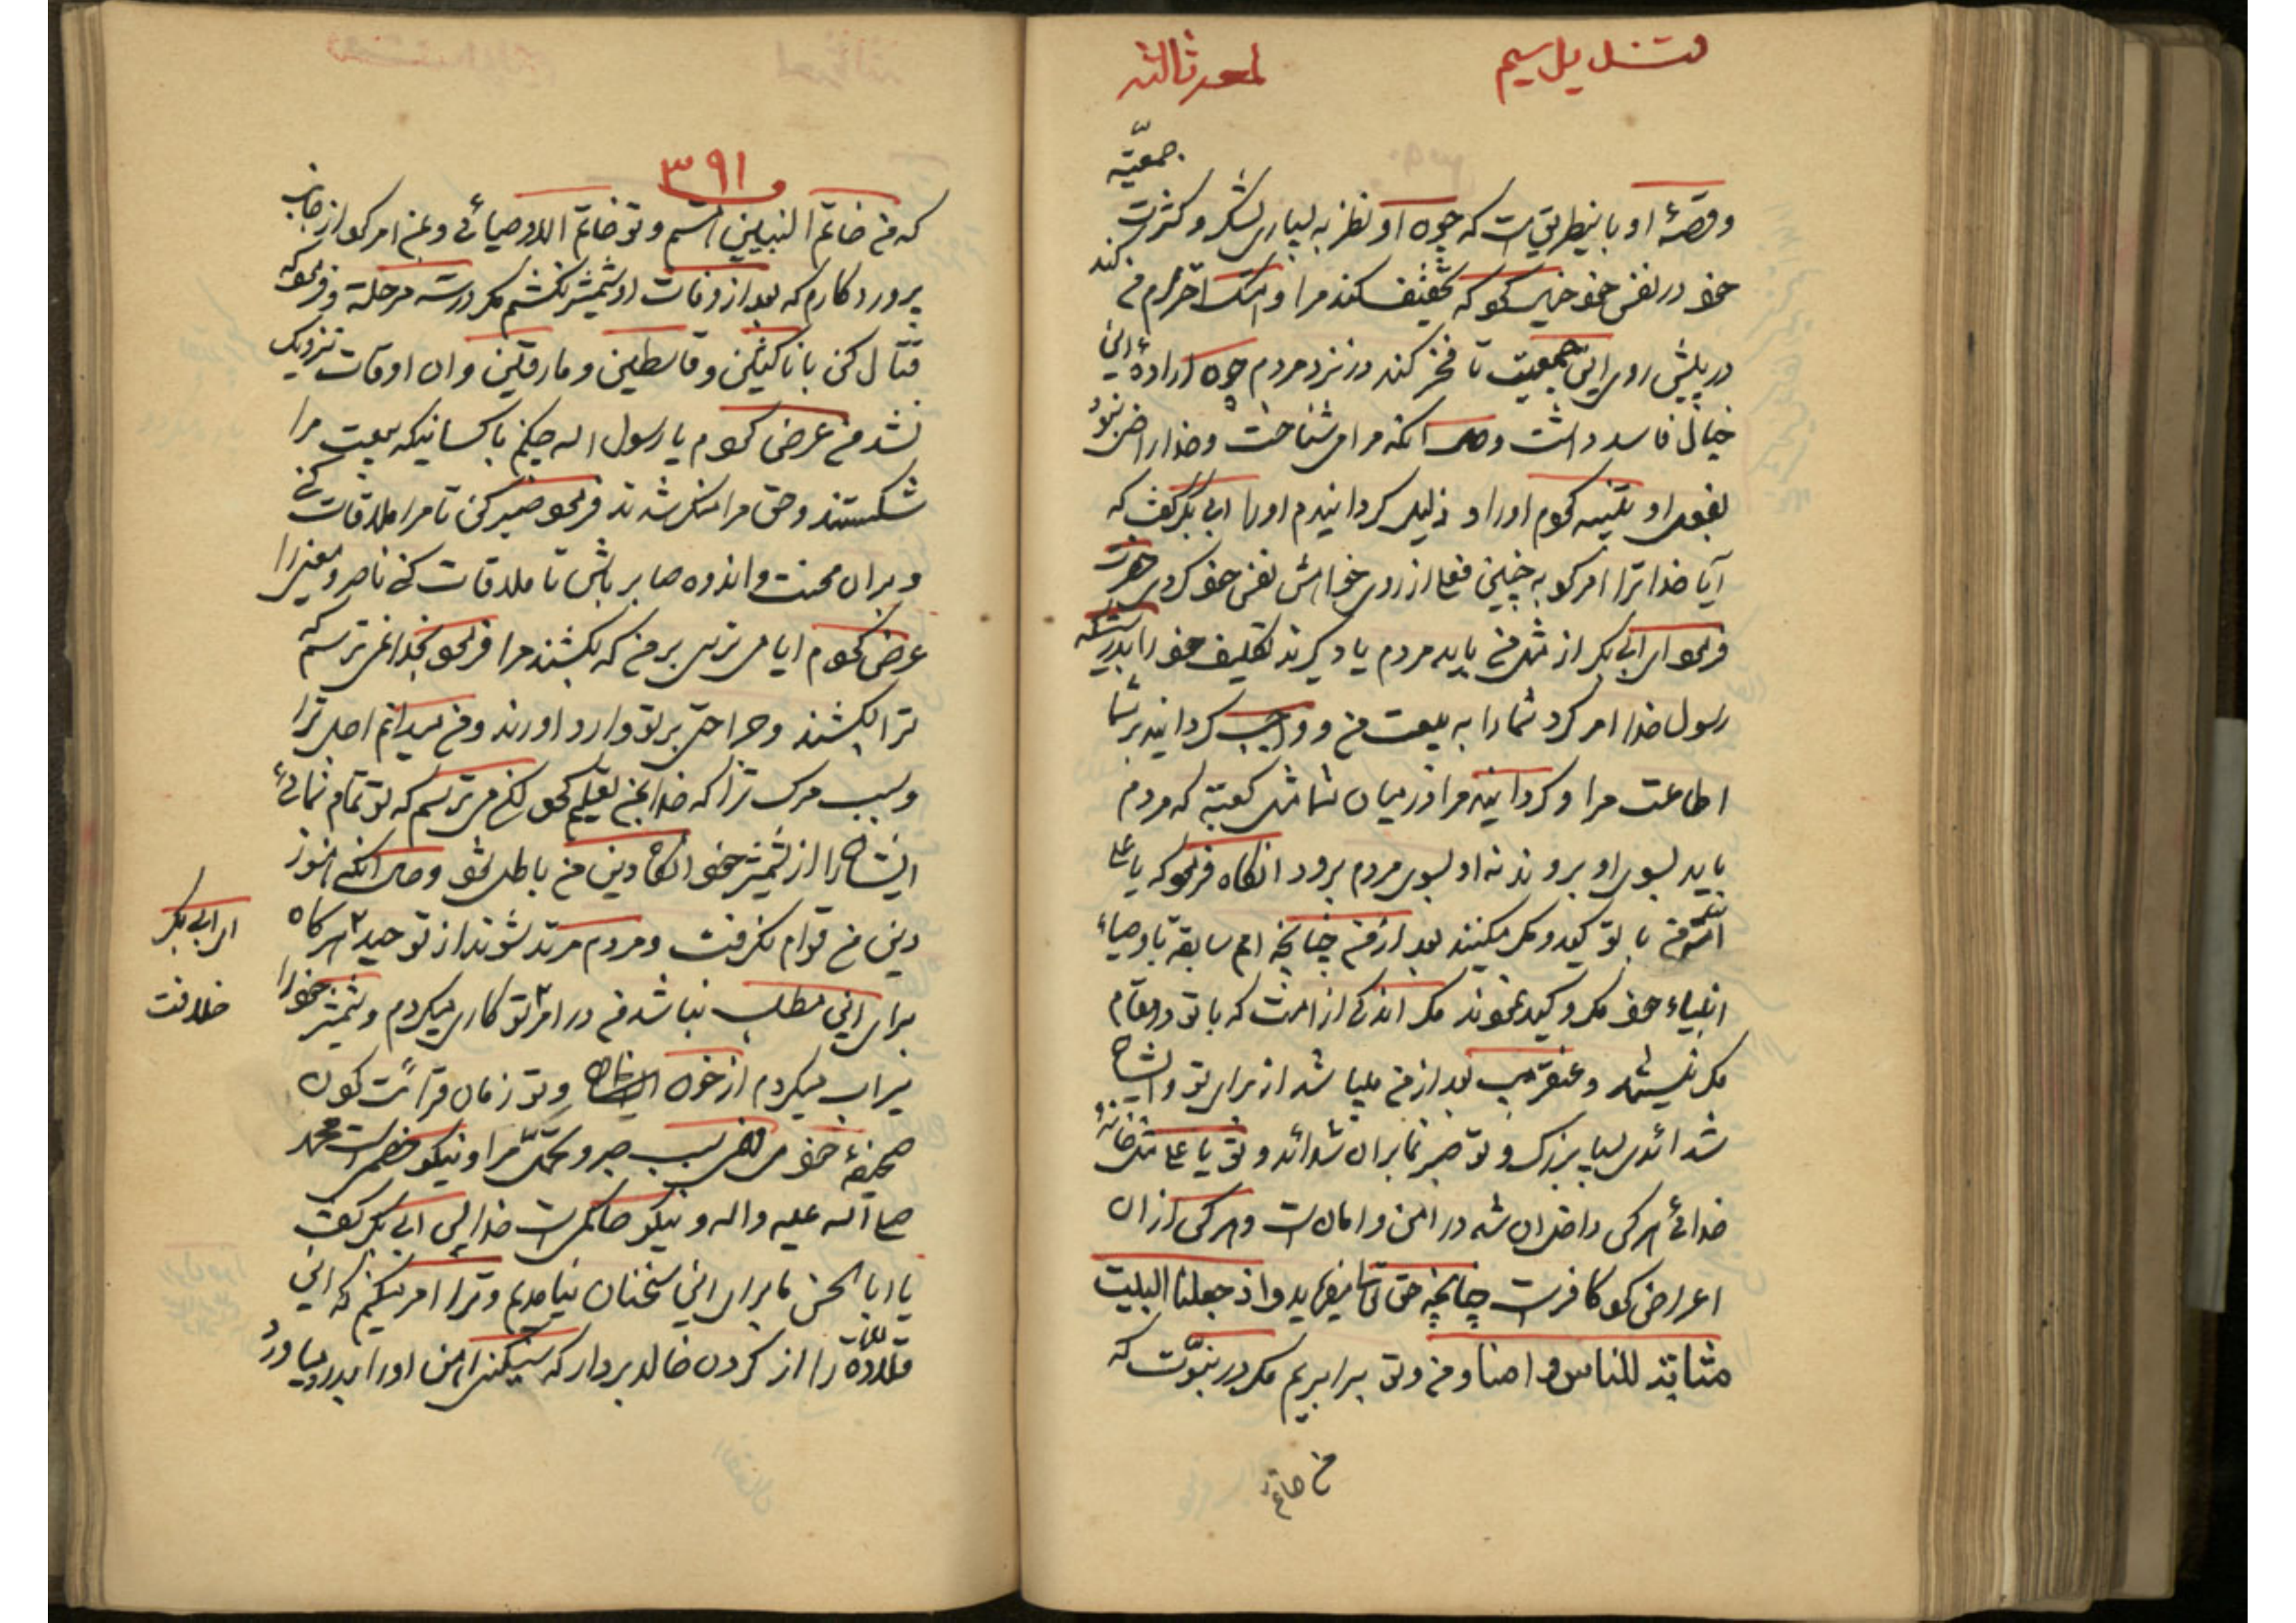 قتسدیل سیم
لمعه ثالثه
جمعیّه
وقصّهٔ او باینطریق است که چون او نظر به بسیاری لشکر و کثرت
خود در نفس خود خیال نمود که تخفیف کند مرا و هتک احترام من کند
در پیش روی این جمعیت تا فخر کند در نزد مردم چون ارادهٔ این
خیال فاسد داشت و حال انکه مرا می شناخت و خدا راضی نبود
بفعل او تنبیه نمودم او را و ذلیل کردانیدم او را ابی بکر کفت که
آیا خدا ترا امر نمود به چنین فعل از روی خواهش نفس خود کردی حضرت
فرمود ای ابی بکر از مثل من باید مردم یاد کیرند تکلیف خود را بدرستیکه
رسول خدا امر کرد شما را به بیعت من و واجب کردانید بر شما
اطاعت مرا و کردانید مرا در میان شما مثل کعبة که مردم
باید بسوی او بروند نه او بسوی مردم برود انکاه فرمود که یا علی
امّت من با تو کید و مکر میکنند بعد از من چنانچه امم سابقه باوصیاء
انبیاء خود مکر و کید نمودند مکر اندکی از امت که با تو در مقام
مکر نیستند و عنقریب بعد از من میباشد از برای تو و ایشان
شدائدی بسیار بزرک و تو صبر نما بران شدائد و تو یا علی مثل خانهٔ
خدائی هر کس داخل ان شد در امن و امان است و هر کس از ان
اعراض نمود کافر است چنانچه حق تعالی میفرماید و اذ جعلنا البیت
مثابة للناس و امنا و من و تو برابریم مکر در نبوّت که
من خاتم
۳۹۱
که من خاتم النبیین هستم و تو خاتم الاوصیائی و بمن امر نمود از جانب
پروردکارم که بعد از وفات او شمشیر نکشم مکر در سه مرحلة و فرمود که
قتال کن با ناکثین و قاسطین و مارقین و ان اوقات نزدیک
نشد من عرض نمودم یا رسول اله چکنم با کسانیکه بیعت مرا
شکستند و حق مرا منکر شدند فرمود صبر کن تا مرا ملاقات کنی
و بران محنت و اندوه صابر باش تا ملاقات کنی ناصر و معین را
عرض نمودم ایا می ترسی بر من که بکشند مرا فرمود بخدا نمی ترسم که
ترا بکشند و جراحتی بر تو وارد اورند و من میدانم اجل ترا
و سبب مرک ترا که خدا بمن تعلیم نمود لکن می ترسم که تو تمام نمائی
ایشان را از شمشیر خود انکاه دین من باطل شود و حال انکه هنوز
دین من قوام نکرفت و مردم مرتد شوند از توحید هرکاه
برای این مطلب نباشد من در امر تو کاری میکردم و شمشیر خود را
سیراب میکردم از خون ایشان و تو زمان قرائت نمودن
صحیفهٔ خود می یابی سبب صبر و تحمّل مرا و نیکو خصم است محمد
صلی اله علیه و اله و نیکو حاکم است خدا پس ابی بکر کفت
یا ابا الحسن ما برای این سخنان نیامدیم و ترا امر میکنم که این
قلاده را از کردن خالد بردار که سنکینی اهن او را بدرد میاورد
ای ابی بکر
خلافت